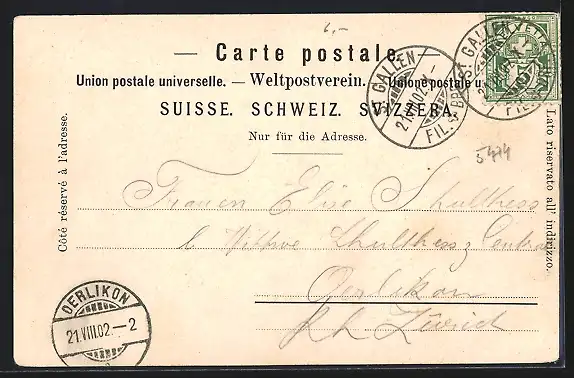 6,-
— Carte postale. —
Union postale universelle. — Weltpostverein. — Unione postale u
SUISSE. SCHWEIZ. SVIZZERA.
Nur für die Adresse.
Côté réservé à l'adresse.
Lato riservato all' indirizzo.
ST. GALLEN
21.VIII.02.X-
FIL.
5474
Frauen Elise Schulthess
b. Wittwe Schulthess z. Central
Oerlikon
Kt. Zürich
OERLIKON
21.VIII.02.-2